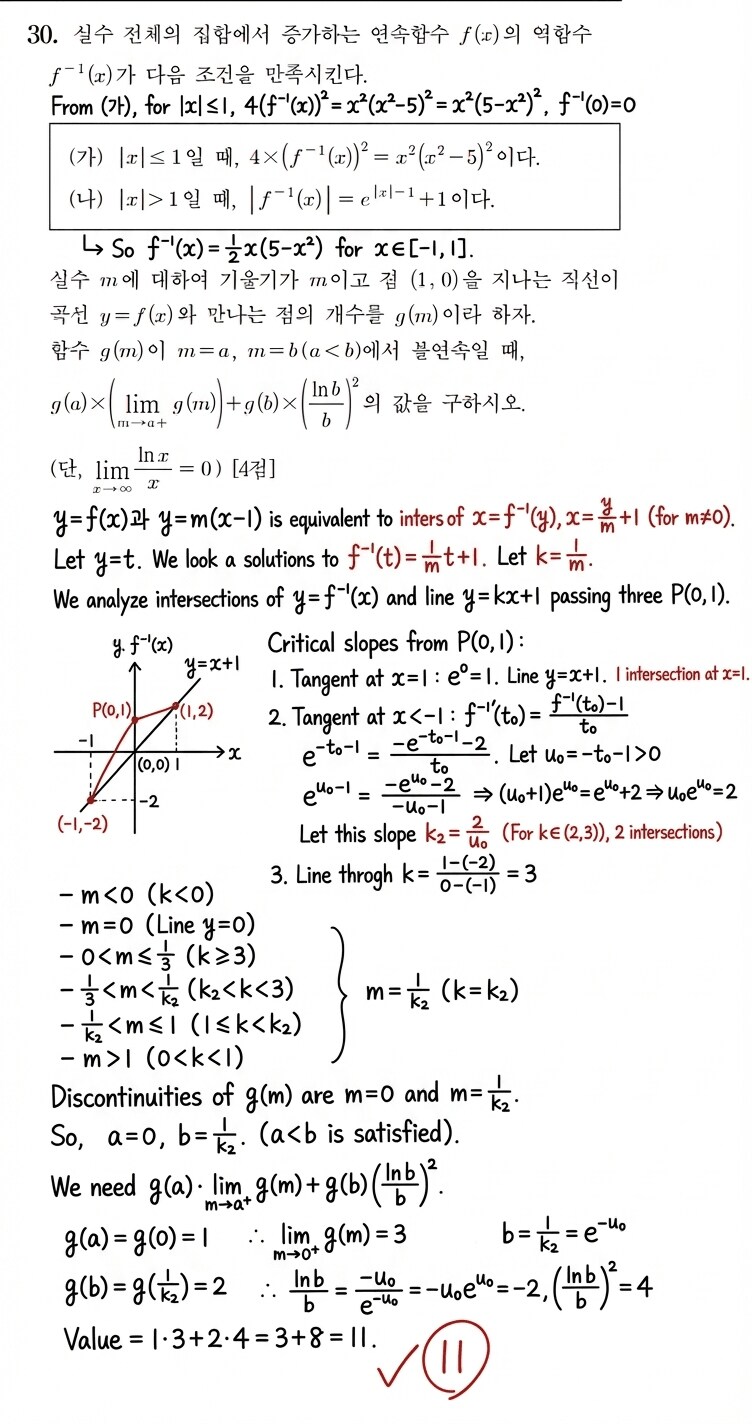 30. 실수 전체의 집합에서 증가하는 연속함수 f(x)의 역함수
f⁻¹(x)가 다음 조건을 만족시킨다.
From (가), for |x|≤1, 4(f⁻¹(x))²=x²(x²-5)²=x²(5-x²)², f⁻¹(0)=0
(가) |x|≤1일 때, 4×(f⁻¹(x))²=x²(x²-5)²이다.
(나) |x|>1일 때, |f⁻¹(x)|=e^{|x|-1}+1이다.
↳ So f⁻¹(x)=½x(5-x²) for x∈[-1,1].
실수 m에 대하여 기울기가 m이고 점 (1, 0)을 지나는 직선이
곡선 y=f(x)와 만나는 점의 개수를 g(m)이라 하자.
함수 g(m)이 m=a, m=b(a<b)에서 불연속일 때,
g(a)×(lim_{m→a+} g(m))+g(b)×(ln b/b)²의 값을 구하시오.
(단, lim_{x→∞} ln x/x = 0) [4점]
y=f(x)과 y=m(x-1) is equivalent to inters of x=f⁻¹(y), x=y/m+1 (for m≠0).
Let y=t. We look a solutions to f⁻¹(t)=1/m t+1. Let k=1/m.
We analyze intersections of y=f⁻¹(x) and line y=kx+1 passing three P(0,1).
y. f⁻¹(x)
y=x+1
P(0,1)
(1,2)
-1
(0,0) 1
x
-2
(-1,-2)
Critical slopes from P(0,1):
1. Tangent at x=1 : e⁰=1. Line y=x+1. 1 intersection at x=1.
2. Tangent at x<-1 : f⁻¹'(t₀)=(f⁻¹(t₀)-1)/t₀
e^{-t₀-1} = (-e^{-t₀-1}-2)/t₀. Let u₀=-t₀-1>0
e^{u₀-1} = (-e^{u₀}-2)/(-u₀-1) ⇒ (u₀+1)e^{u₀}=e^{u₀}+2 ⇒ u₀e^{u₀}=2
Let this slope k₂=2/u₀ (For k∈(2,3)), 2 intersections)
3. Line throgh k= (1-(-2))/(0-(-1)) = 3
- m<0 (k<0)
- m=0 (Line y=0)
- 0<m≤1/3 (k≥3)
- 1/3<m<1/k₂ (k₂<k<3)
- 1/k₂<m≤1 (1≤k<k₂)
- m>1 (0<k<1)
m=1/k₂ (k=k₂)
Discontinuities of g(m) are m=0 and m=1/k₂.
So, a=0, b=1/k₂. (a<b is satisfied).
We need g(a)·lim_{m→a⁺} g(m)+g(b)(ln b/b)².
g(a)=g(0)=1 ∴ lim_{m→0⁺} g(m)=3 b=1/k₂=e^{-u₀}
g(b)=g(1/k₂)=2 ∴ ln b/b = -u₀/e^{-u₀} = -u₀e^{u₀}=-2, (ln b/b)²=4
Value = 1·3+2·4=3+8=11.
✓ 11